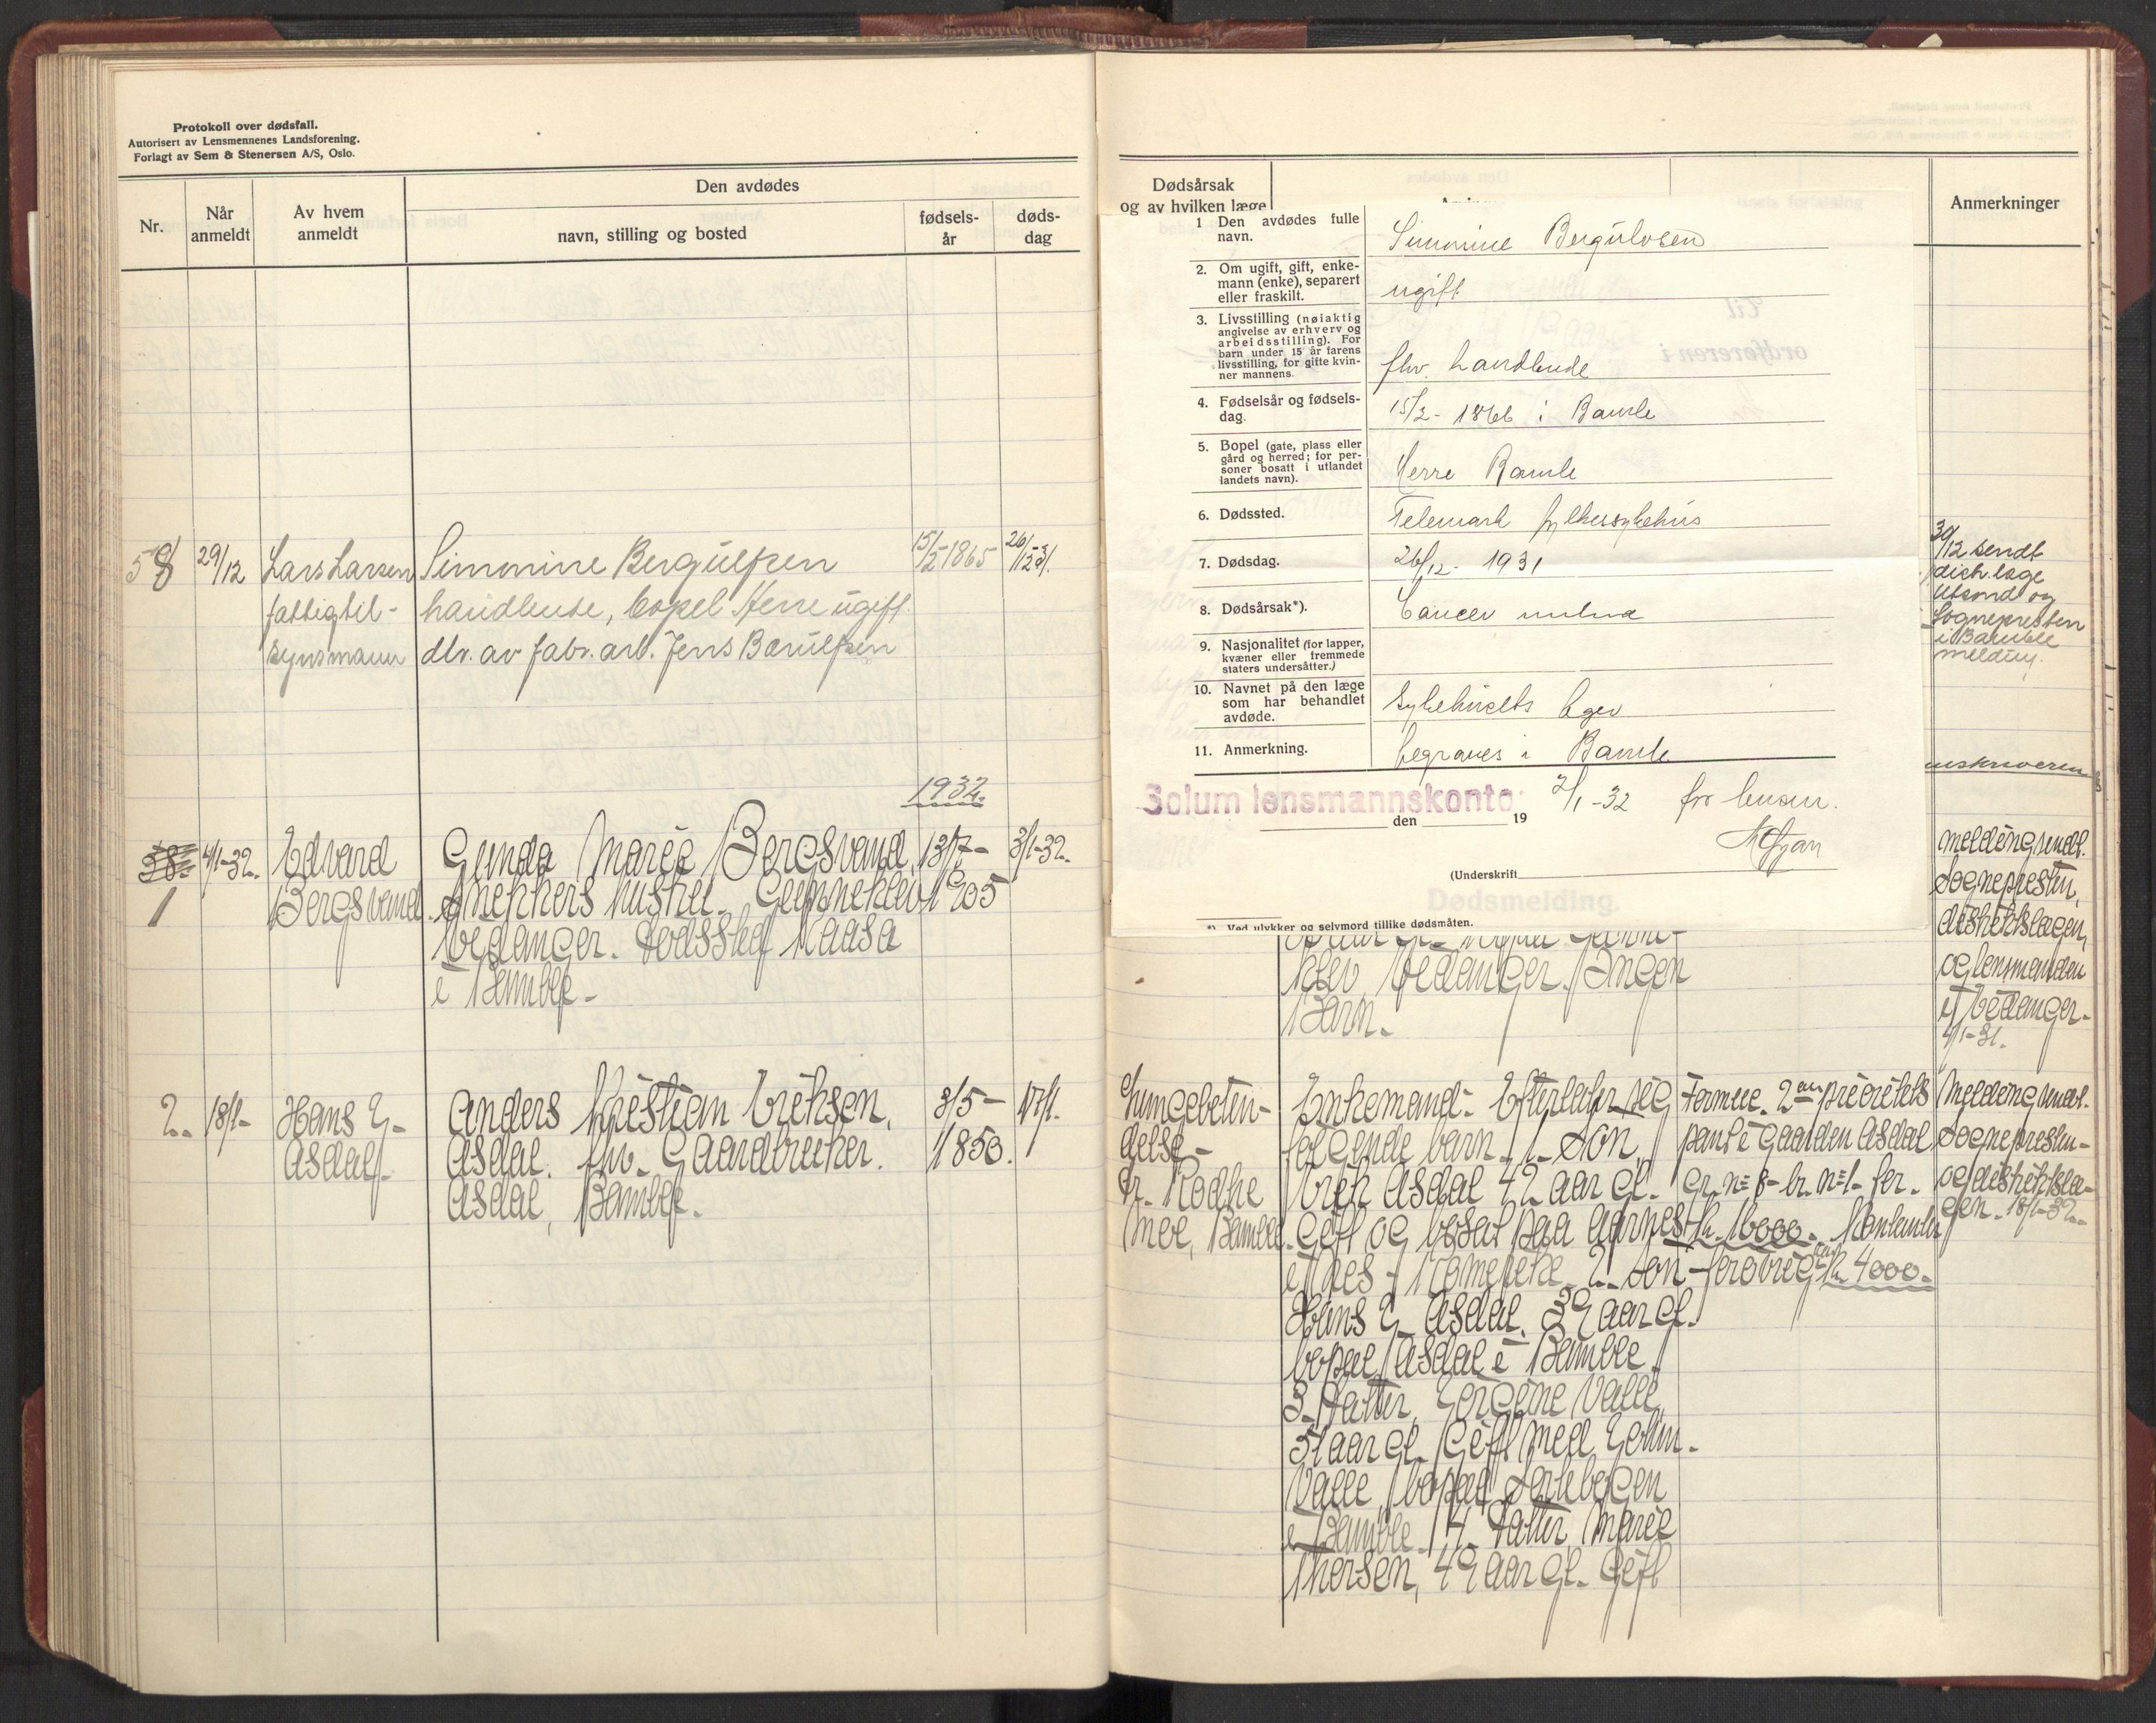 Protokoll over dødsfall.
Autorisert av Lensmennenes Landsforening.
Forlagt av Sem & Stenersen A/S, Oslo.
Nr.
Når anmeldt
Av hvem anmeldt
Den avdødes
navn, stilling og bosted
fødsels-
år
døds-
dag
58 29/12 Lars Larsen Simonine Bergulfsen 15/2 1865 26/12 31.
fattigtil- handlende, bopel Herre ugift.
synsmann dtr. av fabr. arb. Jens Bærulfsen
1932.
38. 4/1-32. Edvard Gunda Marie Bergsvand 13/7- 3/1-32.
1 Bergsvand. Snekkers hustru. Gunneklev 1905
Eidanger. Dødssted Aasa
i Bamble.-
2. 18/1- Hans E. Anders Kristian Eriksen, 3/5- 17/1.
Asdal. Asdal. fhv. Gaardbruker. 1850.
Asdal, Bamble.
Dødsårsak
og av hvilken læge
Anmerkninger
1 Den avdødes fulle
navn.
Simonine Bergulvsen
2. Om ugift, gift, enke-
mann (enke), separert
eller fraskilt.
ugift
3. Livsstilling (nøiaktig
angivelse av erhverv og
arbeidsstilling). For
barn under 15 år farens
livsstilling, for gifte kvin-
ner mannens.
fhv. handlende
4. Fødselsår og fødsels-
dag.
15/2- 1866 i Bamle
5. Bopel (gate, plass eller
gård og herred; for per-
soner bosatt i utlandet
landets navn).
Herre Bamle
6. Dødssted.
Telemark fylkessykehus
7. Dødsdag.
26/12- 1931
8. Dødsårsak*).
Cancer
9. Nasjonalitet (for lapper,
kvæner eller fremmede
staters undersåtter.)
10. Navnet på den læge
som har behandlet
avdøde.
Sykehusets læger
11. Anmerkning.
begraves i Bamle
Solum lensmannskontor 2/1-32 for lensm.
den 19
(Underskrift
Dødsmelding.
*) Ved ulykker og selvmord tillike dødsmåten.
30/12 sendt
distr. læge
Utsond og
Sognepresten
i Bamble
melding.
klev Eidanger. Ingen
Barn.-
Melding sendt.
Sognepresten,
distriktslægen,
og lensmanden
i Eidanger.-
4/1-31.
Lungebeten-
delse-
Dr. Rodhe
Moe, Bamble.
Enkemand- Efterlater seg
følgende barn. 1. Søn,
Erik Asdal 42 aar gl.
Gift og bosat paa Aarnes
i Nes - Romerike. 2. Søn-
Hans E. Asdal. 39 aar gl.
bopæl Asdal i Bamble.
3. Datter, Gorgine Valle,
51 aar gl. Gift med John.
Valle, bopæl
i Bamble. 4. Datter, Marie
Thorsen, 49 aar gl. Gift
Formue. 2den prioritets
pant i Gaarden Asdal
Gr. n= 8- br. n=1- for.
kr. 16000. Kontanter
forøvrig ca. kr. 4000.-
Melding sendt.
Sognepresten-
og distriktslæ-
gen. 18/1-32.-